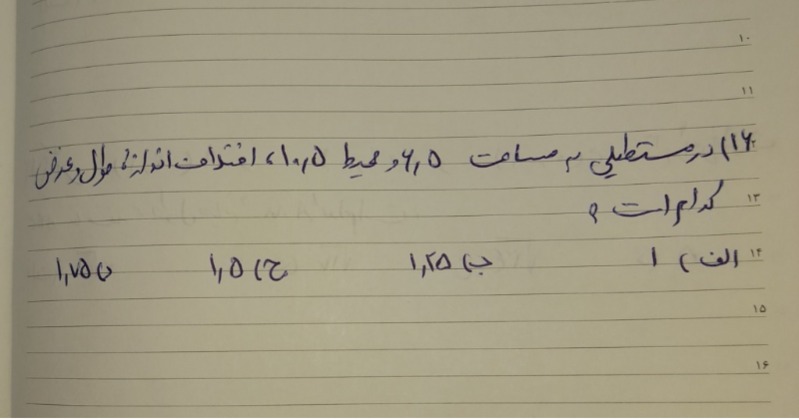 ۱۰
۱۱
۱۶) در مستطیلی به مساحت ۶,۵ و محیط ۱۰,۵، اختلاف اندازهٔ طول و عرض
۱۳ کدام است ؟
۱۴ الف) ۱ ب) ۱,۲۵ ج) ۱,۵ د) ۱,۷۵
۱۵
۱۶